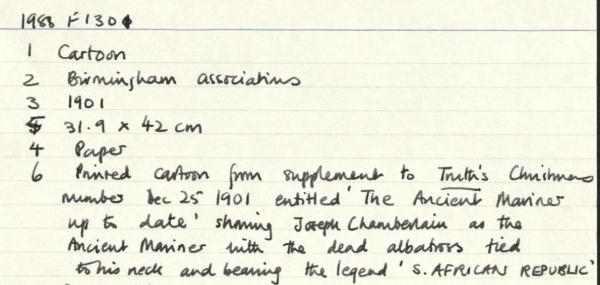 1988 F130
1 Cartoon
2 Birmingham associations
3 1901
5 31.9 x 42 cm
4 Paper
6 Printed cartoon from supplement to Truth's Christmas
number Dec 25 1901 entitled 'The Ancient Mariner
up to date' showing Joseph Chamberlain as the
Ancient Mariner with the dead albatross tied
to his neck and bearing the legend 'S. AFRICAN REPUBLIC'